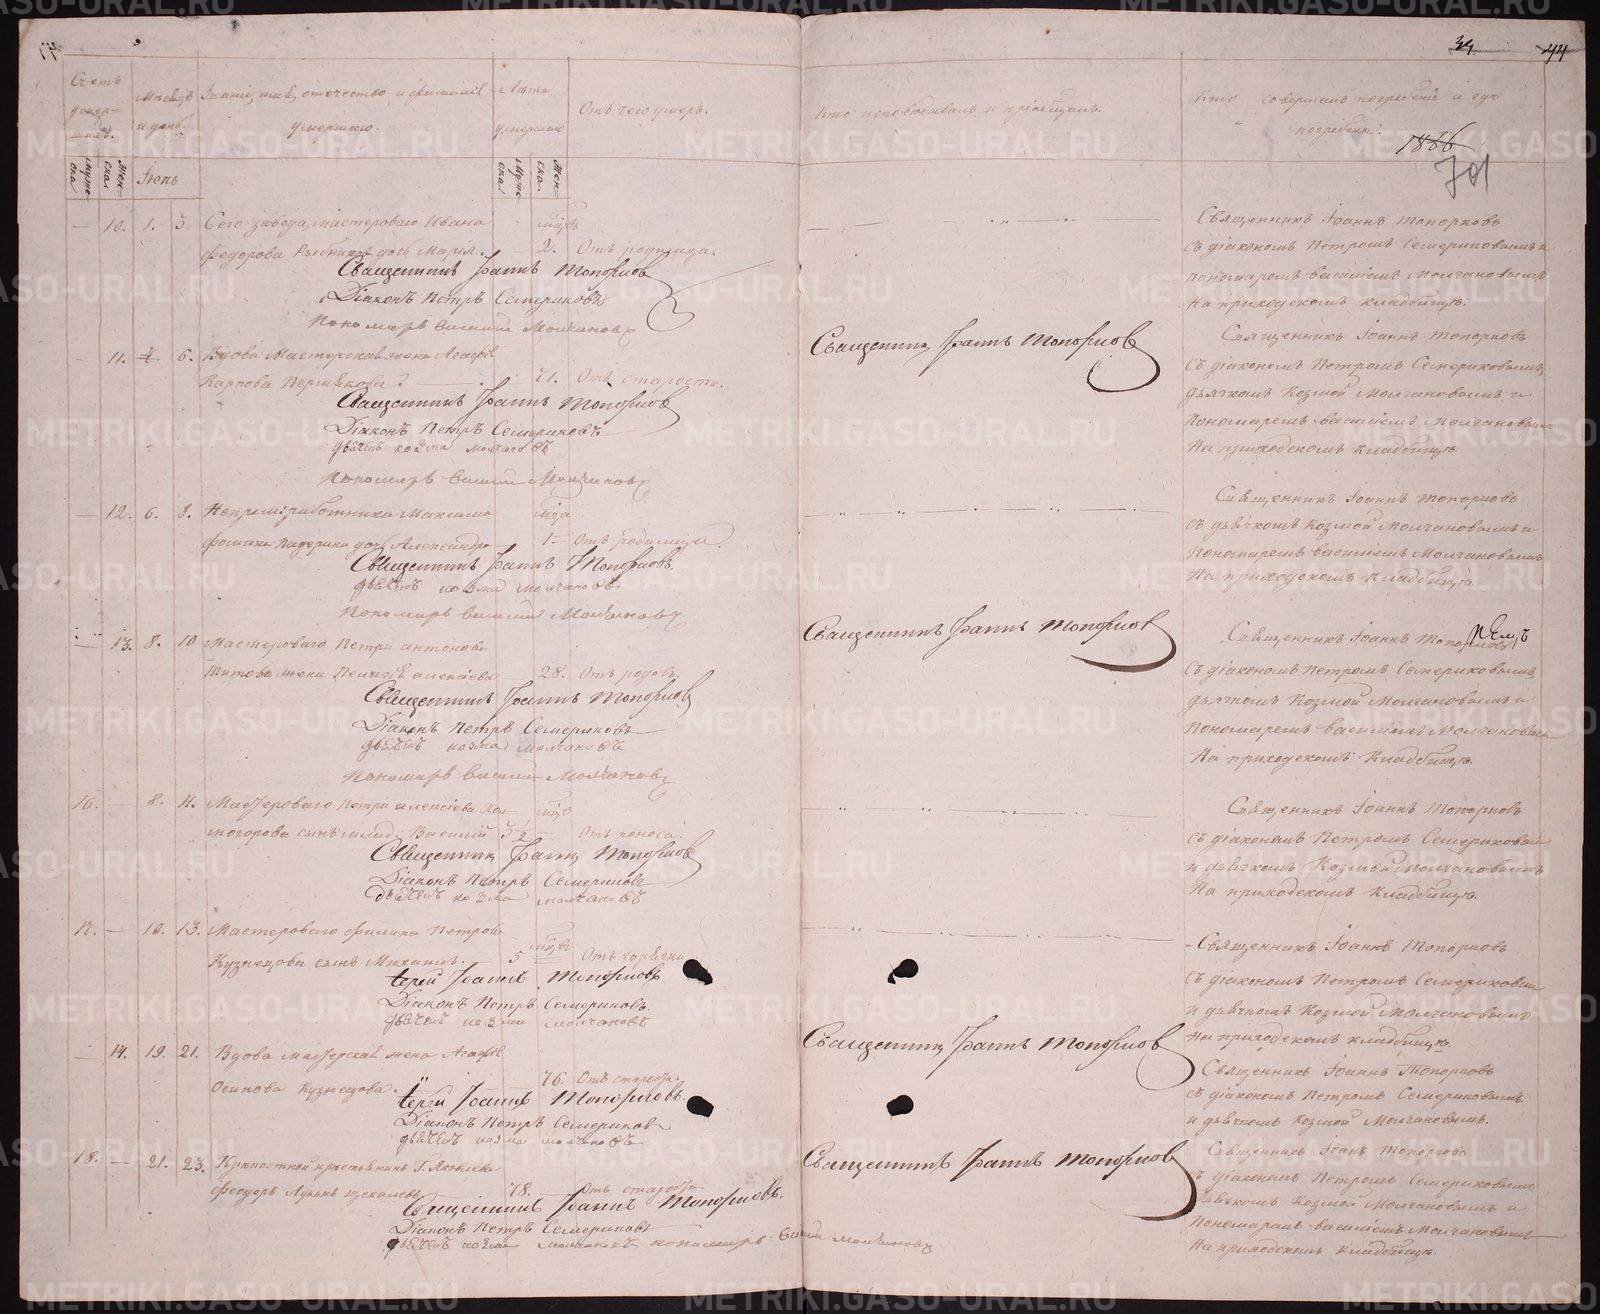 34. 44
Счетъ умершихъ.
Мѣсяцъ и день.
Званіе, имя, отечество и фамилія умершаго.
Лѣта умершаго
Отъ чего умеръ.
Кто исповѣдывалъ и пріобщалъ.
Кто совершалъ погребеніе и гдѣ погребены.
1886
701
муже- ска
Жен- ска
Іюнь
муже- ска
Жен- ска.
10. 1. 3. Сего завода мастероваго Ивана
Федорова дочь Марія. 2. Отъ родимца.
Священникъ Іоаннъ Топорковъ
Діаконъ Петръ Семериковъ
Пономарь Василій Молчановъ
Священникъ Іоаннъ Топорковъ
съ діакономъ Петромъ Семериковымъ и
пономаремъ Василіемъ Молчановымъ
На приходскомъ кладбищѣ.
11. 6. Вдова Мастерская жена Агафія
Карпова Пермякова. 71. Отъ старости.
Священникъ Іоаннъ Топорковъ
Діаконъ Петръ Семериковъ
дьячекъ козма молчановъ
Пономарь Василій Молчановъ
Священникъ Іоаннъ Топорковъ
Священникъ Іоаннъ Топорковъ
съ діакономъ Петромъ Семериковымъ,
дьячкомъ Козмой Молчановымъ и
Пономаремъ Василіемъ Молчановымъ
На приходскомъ кладбищѣ.
12. 6. 8. Непрем: работника Максима
дочь Александра 1 Отъ родимца.
Священникъ Іоаннъ Топорковъ.
дьячекъ козма молчановъ
Пономарь Василій Молчановъ
Священникъ Іоаннъ Топорковъ
съ дьячкомъ Козмой Молчановымъ и
Пономаремъ Василіемъ Молчановымъ
На приходскомъ кладбищѣ.
13. 8. 10 Мастероваго Петра Антонова
Титова жена Пелагія Алексіева 28. Отъ родовъ.
Священникъ Іоаннъ Топорковъ
Діаконъ Петръ Семериковъ
дьячекъ козма молчановъ
Пономарь Василій Молчановъ
Священникъ Іоаннъ Топорковъ
Священникъ Іоаннъ Топорковъ
съ діакономъ Петромъ Семериковымъ,
дьячкомъ Козмой Молчановымъ и
Пономаремъ Василіемъ Молчановымъ
На приходскомъ Кладбищѣ.
16. 8. 11. Мастероваго Петра Алексіева Кол-
могорова сынъ млад. Василій 3 1/2 Отъ поноса.
Священникъ Іоаннъ Топорковъ
Діаконъ Петръ Семериковъ
дьячекъ козма молчановъ
Священникъ Іоаннъ Топорковъ
съ діакономъ Петромъ Семериковымъ
и дьячкомъ Козмой Молчановымъ
На приходскомъ Кладбищѣ.
17. 10. 13. Мастероваго Филипа Петрова
Кузнецова сынъ Михаилъ. 5 Отъ горячки
Іерей Іоаннъ Топорковъ
Діаконъ Петръ Семериковъ.
дьячекъ козма молчановъ
Священникъ Іоаннъ Топорковъ
съ діакономъ Петромъ Семериковымъ
и дьячкомъ Козмой Молчановымъ
На приходскомъ кладбищѣ.
14. 19. 21. Вдова мастерская жена Агафія
Осипова Кузнецова. 76. Отъ старости.
Іерей Іоаннъ Топорковъ.
Діаконъ Петръ Семериковъ
дьячекъ козма молчановъ
Священникъ Іоаннъ Топорковъ
Священникъ Іоаннъ Топорковъ
съ діакономъ Петромъ Семериковымъ.
и дьячкомъ Козмой Молчановымъ.
18. 21. 23. Крѣпостной крестьянинъ Г. Яковлева
Феодоръ 78. Отъ старости.
Священникъ Іоаннъ Топорковъ.
Діаконъ Петръ Семериковъ
дьячекъ козма молчановъ пономарь Василій Молчановъ
Священникъ Іоаннъ Топорковъ
Священникъ Іоаннъ Топорковъ
съ діакономъ Петромъ Семериковымъ
дьячкомъ Козмой Молчановымъ и
Пономаремъ Василіемъ Молчановымъ
На приходскомъ Кладбищѣ.
METRIKI.GASO-URAL.RU